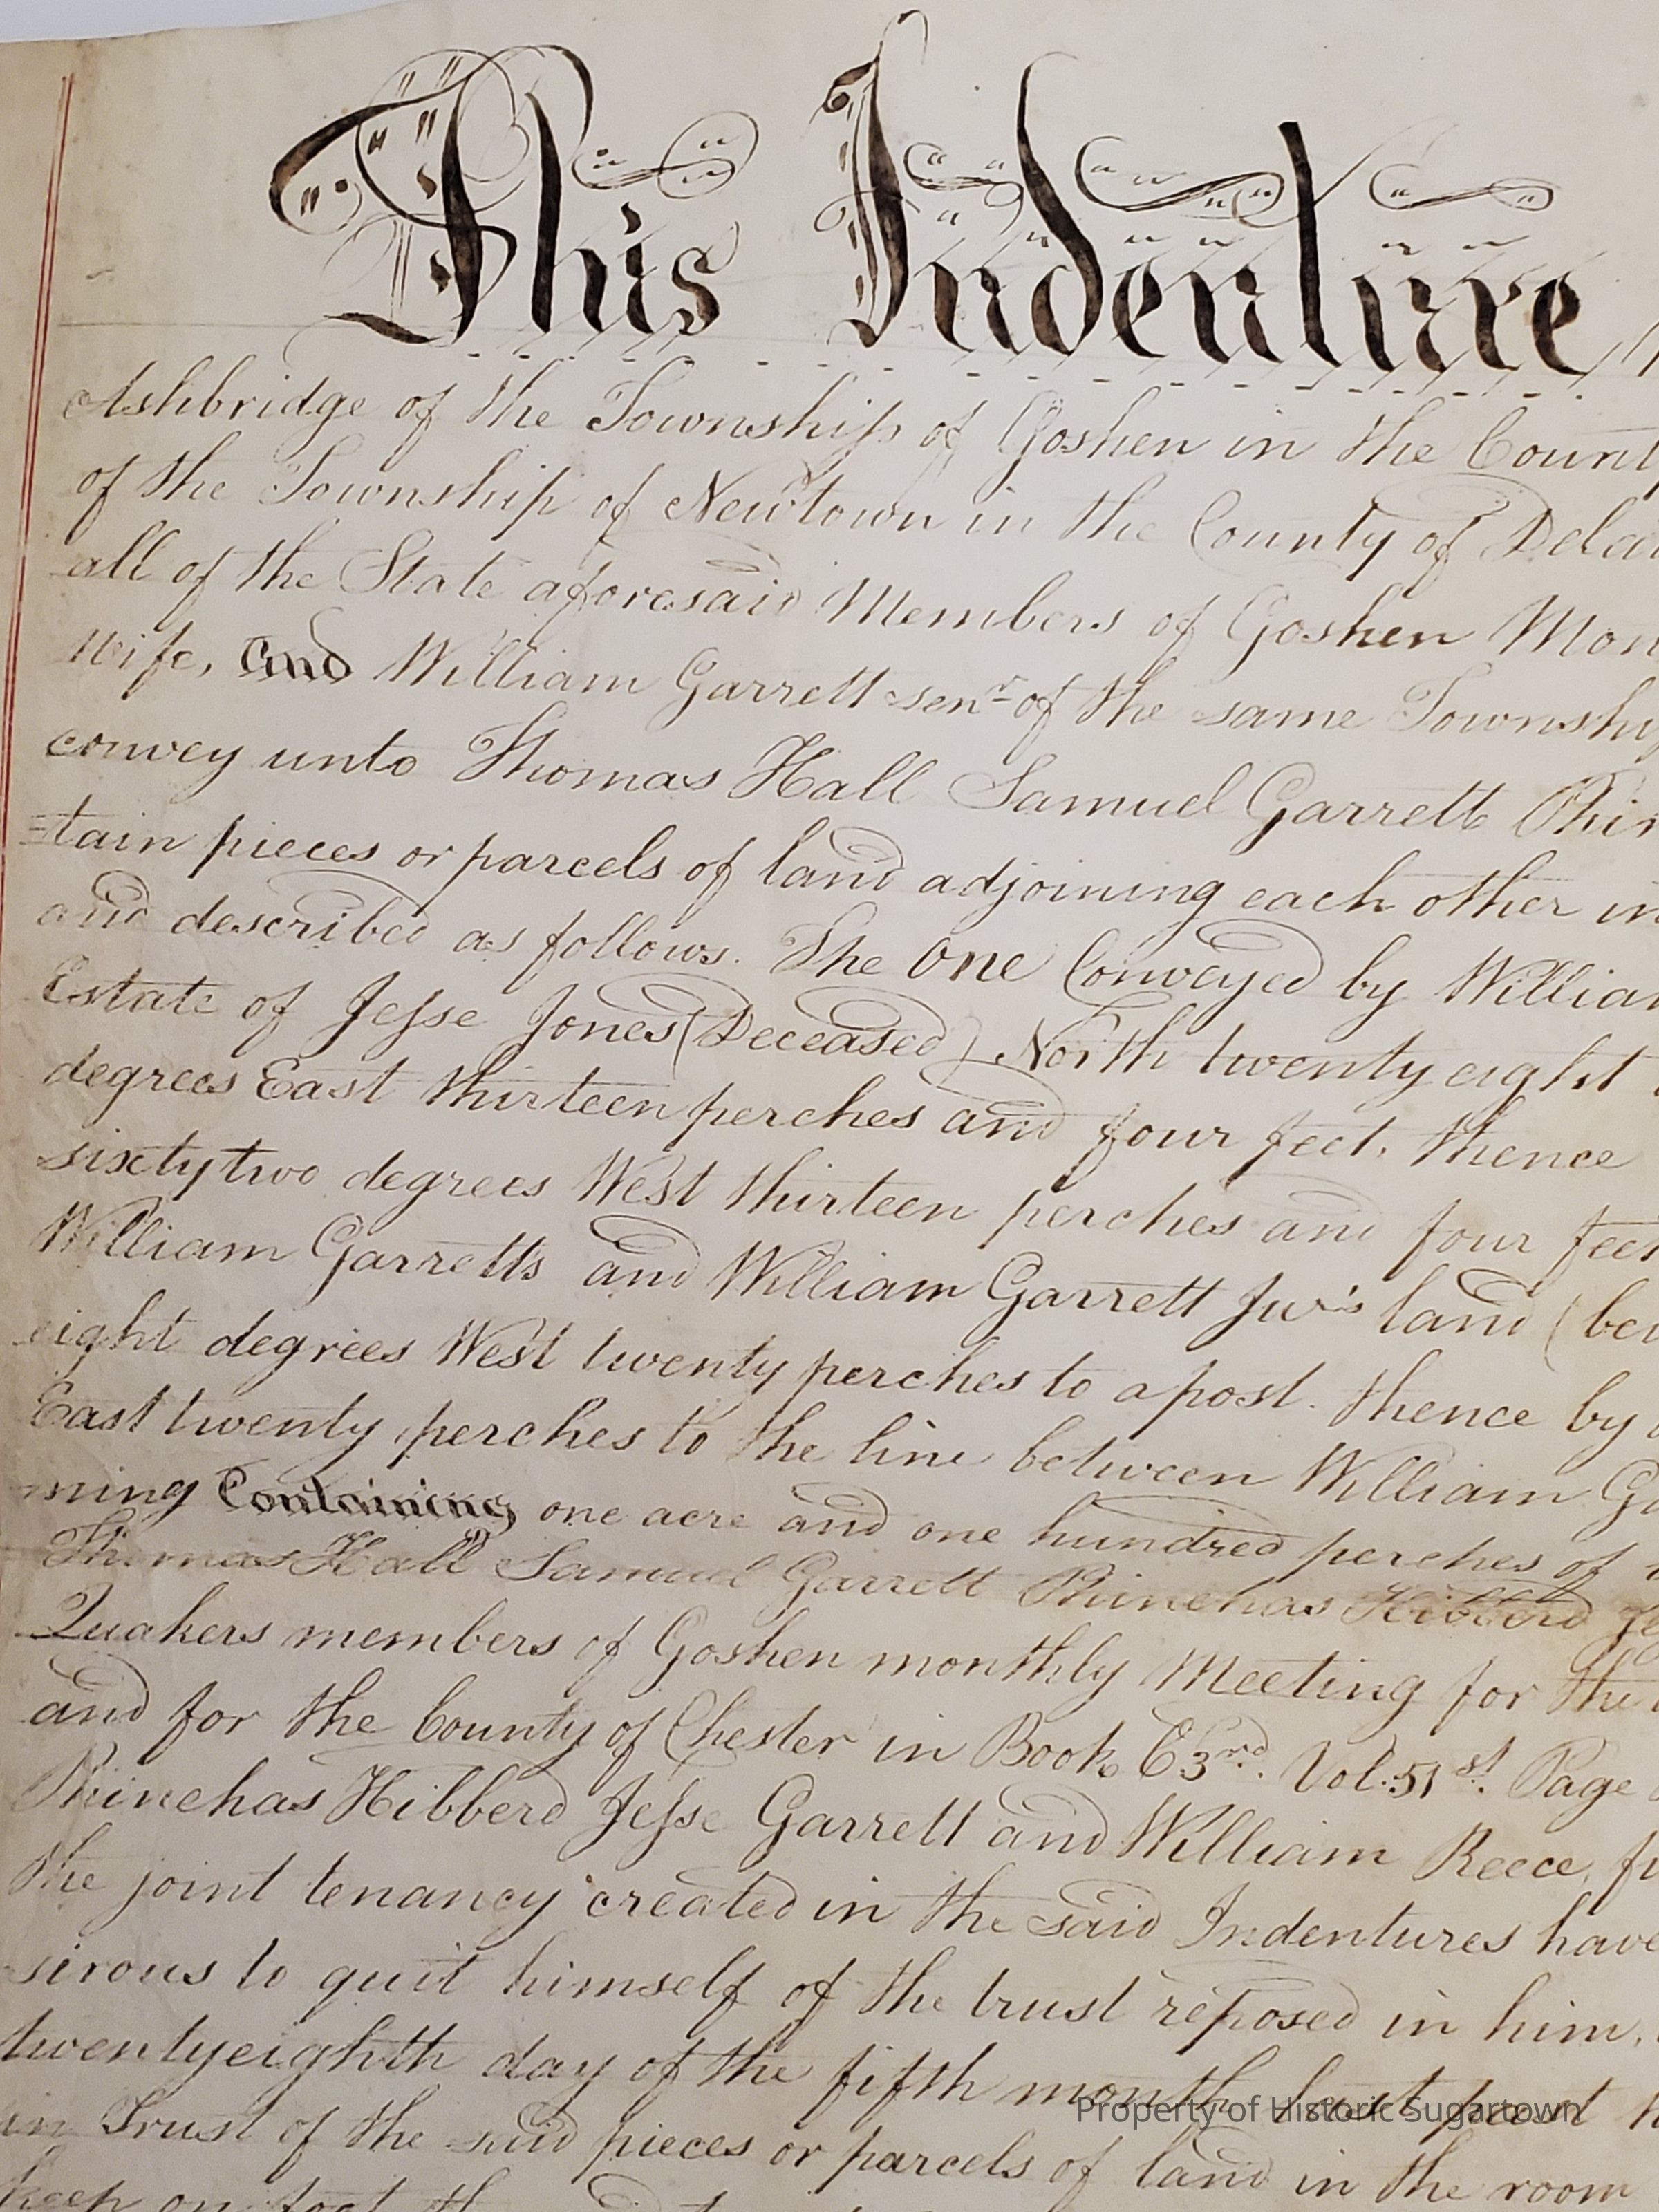 This Indenture
Ashbridge of the Township of Goshen in the Count
of the Township of Newtown in the County of Dela
all of the State aforesaid Members of Goshen Mon
wife, And William Garrett senr of the same Townshi
convey unto Thomas Hall Samuel Garrett Phin
=tain pieces or parcels of land adjoining each other in
and described as follows. The one Conveyed by William
Estate of Jesse Jones (Deceased) North twenty eight
degrees East thirteen perches and four feet, thence
sixty two degrees West thirteen perches and four feet
William Garretts and William Garrett Jur's land (bei
eight degrees West twenty perches to a post. thence by
East twenty perches to the line between William Ga
ning Containing one acre and one hundred perches of
Thomas Hall Samuel Garrett Phinehas Hibberd Je
Quakers members of Goshen monthly Meeting for the
and for the County of Chester in Book C 3rd. Vol. 51st. Page
Phinehas Hibberd Jesse Garrett and William Reece,
the joint tenancy created in the said Indentures have
sirous to quit himself of the trust reposed in him,
twentyeighth day of the fifth month last past
in Trust of the said pieces or parcels of land in the room
keep on foot
Property of Historic Sugartown